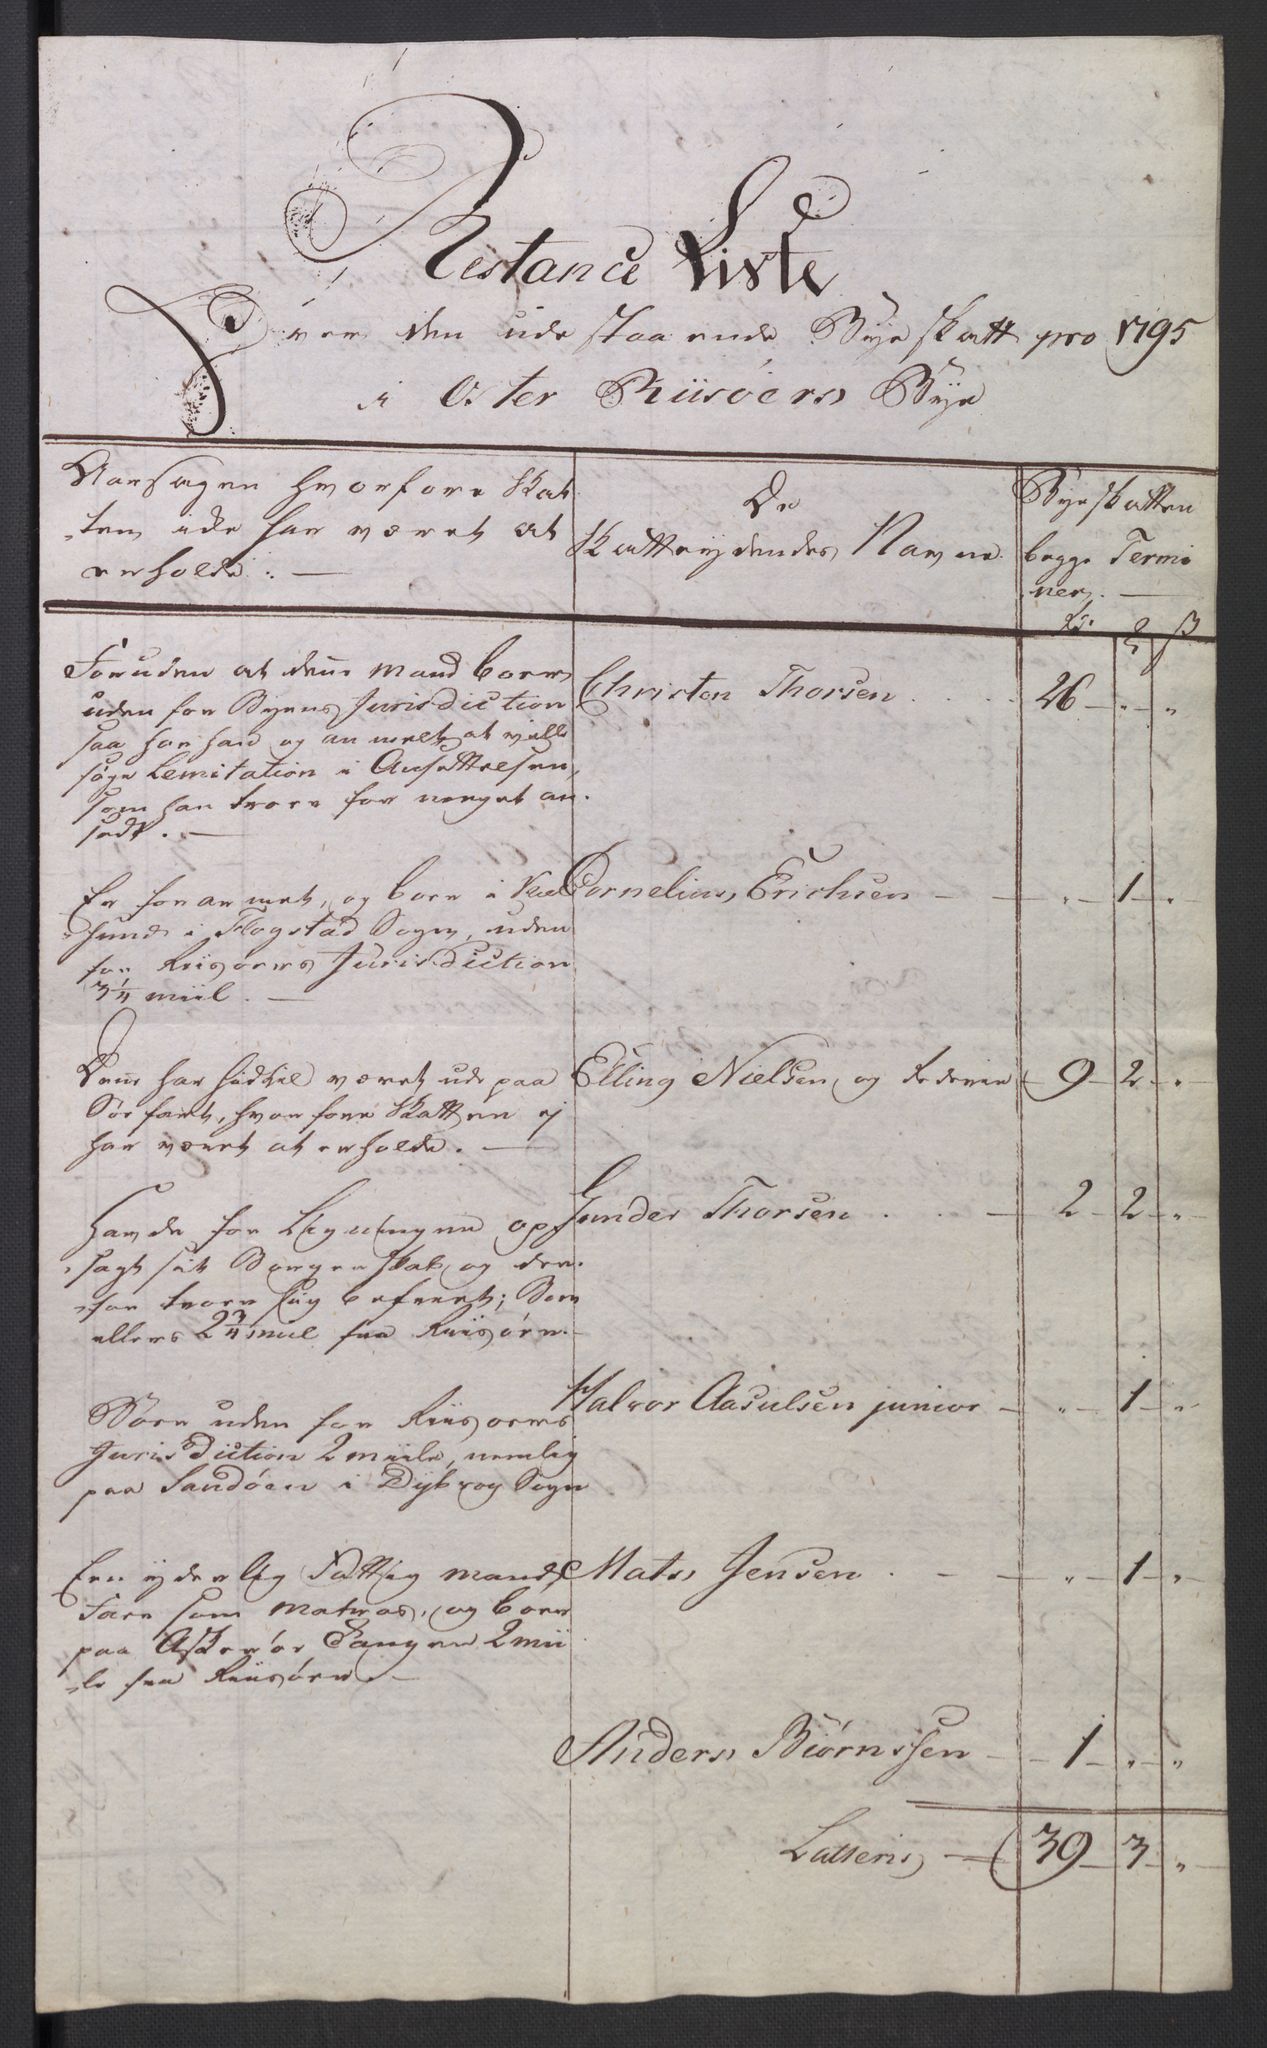 Restance Liste
Over den udestaaende Bye skatt pro 1795
i Oster Riisöers Bye
Aarsagen hvorfore Skat
-ten icke har været at
erholde. —
De
Skatteydendes Navne
Byeskatten
begge Termi
ner. —
Rd. ß
Foruden at denne mand boer
uden for Byens Jurisdiction
saa har han og anmelt at ville
söge Lemitation i Ansættelsen,
som han troer for meget an-
sadt. —
Christen Thorsen 26 " "
Er forarmet, og boer i
sund i Flogstad Sogn, uden
for Riisøers Jurisdiction
3 1/4 miil. —
Cornelius Erichsen " 1 "
Denne har hidtil været ude paa
Söefart, hvorfore Skatten ej
har været at erholde. —
Elling Nielsen og Rederie 9 2 "
Havde for Ligningen op-
sagt sit Borgerskab og der-
for troer sig befriet; Boer
ellers 2 3/4 miil fra Riisøer.
Gunder Thorsen 2 2 "
Boer uden for Riisøers
Jurisdiction 2 miile, nemlig
paa Sandöen i Dybvog Sogn
Halvor Aasulsen junior " 1 "
Een yderlig Fattig mand,
Farer som matros, og boer
paa Askerøe Tangen 2 mii
-le fra Riisøer. —
Mats Jensen " 1 "
Anders Biørnssen 1 " "
Latteris 39 3 "